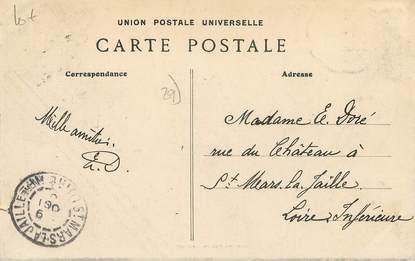 UNION POSTALE UNIVERSELLE
CARTE POSTALE
Correspondance
Adresse
Mille amitiés.
E. D
Madame E. Doré
rue du Château à
St Mars. la. Jaille
Loire Inférieure
ST MARS-LA-JAILLE